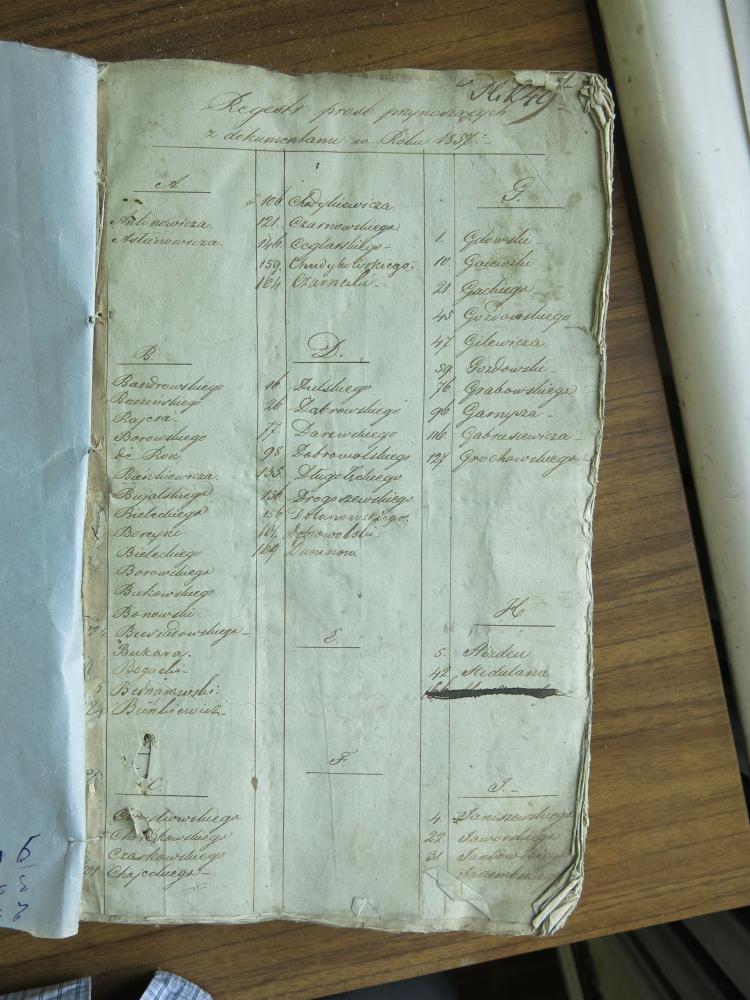 Regestr prosb przynoszących
z dokumentami w Roku 1837.
A.
Antonowicza.
Astanowicza.
B.
Bandrowskiego
Brezinskiego
Bajera.
Borowskiego
de Ron
Bieńkiewicza.
Bujalskiego
Bieleckiego
Boreyki
Bieleckiego
Borowskiego
Bukowskiego
Bonowski.
Biesiadowskiego
Bukara.
Bogucki
Bednarowski
Binkiewicz
C.
Chorążkowskiego
Czarkowskiego
106 Chodykiewicza.
121. Czarnowskiego.
146. Ceglarskiego
159. Chudykowskiego.
164 Czarnecki
D.
16. Dulskiego
26 Dąbrowskiego
77. Darewskiego
98 Dobrowolskiego
135. Długołęckiego
136 Drogoszewskiego
156 Dolanowskiego.
Dobrowolski
169 Duninow.
E.
F.
G.
1. Gdowski
10. Gaiewski
21. Gackiego
45 Gozdowskiego
47. Gilewicza
59. Gozdowski
76 Grabowskiego
96 Garnysza
116. Gabrusiewicza
127 Grochowskiego
H
5.
42.
J.
4. Janiszewskiego
22. Jaworskiego
31.